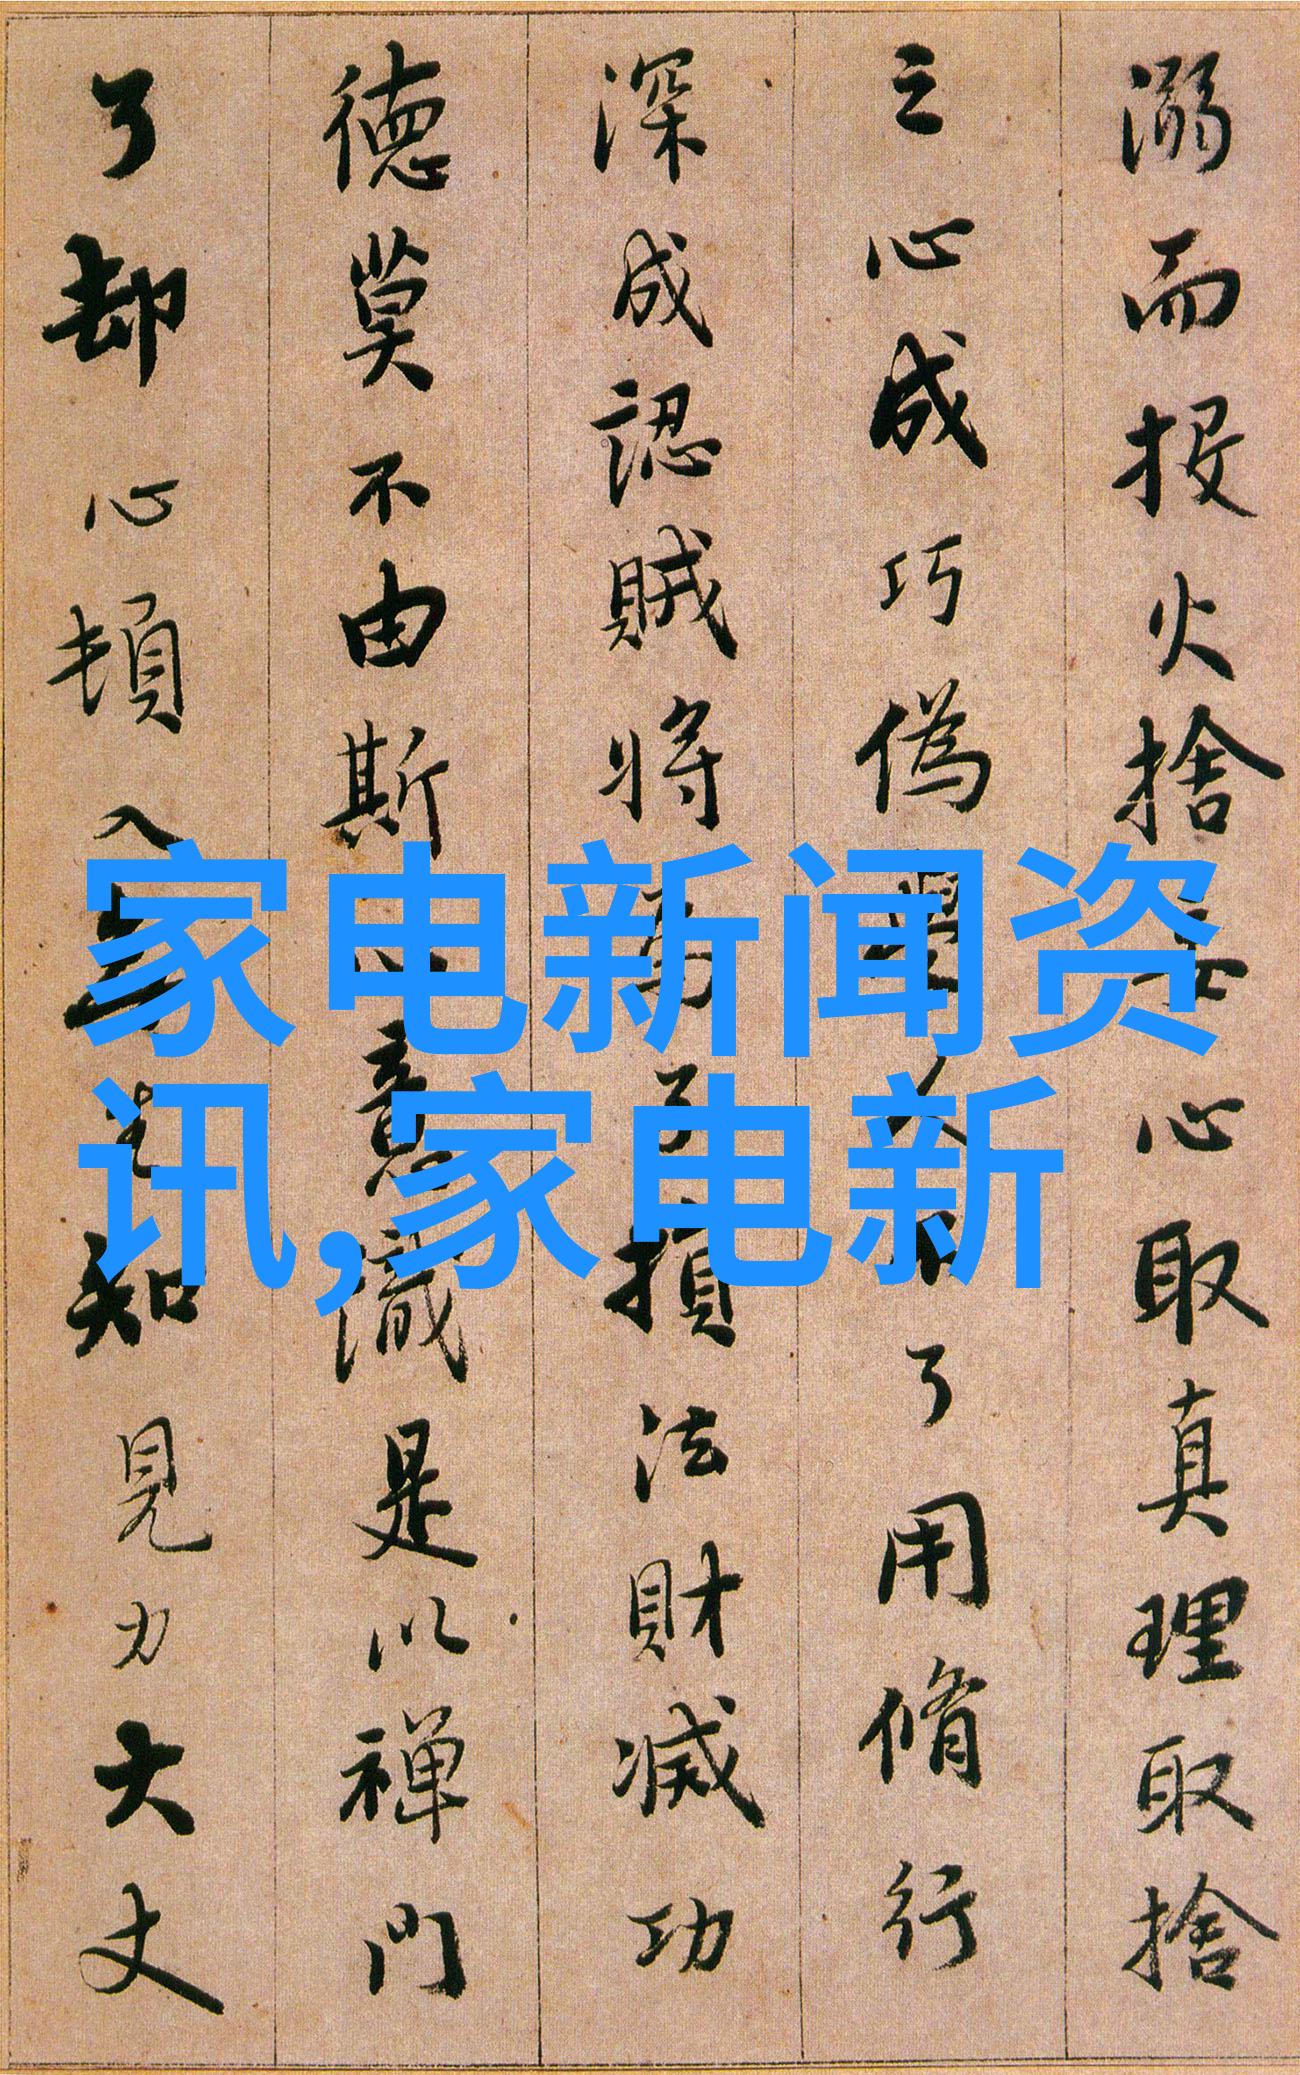 溺而投火捨妄心取真理取捨
之心成巧偽學人不了用脩行
深成認賊將為子損法財滅功
德莫不由斯心意識是以禪門
了却心頓入無生知見力大丈
家电新闻资
讯,家电新